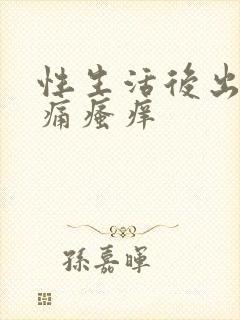 性生活後出
痛瘙痒
孫嘉暉